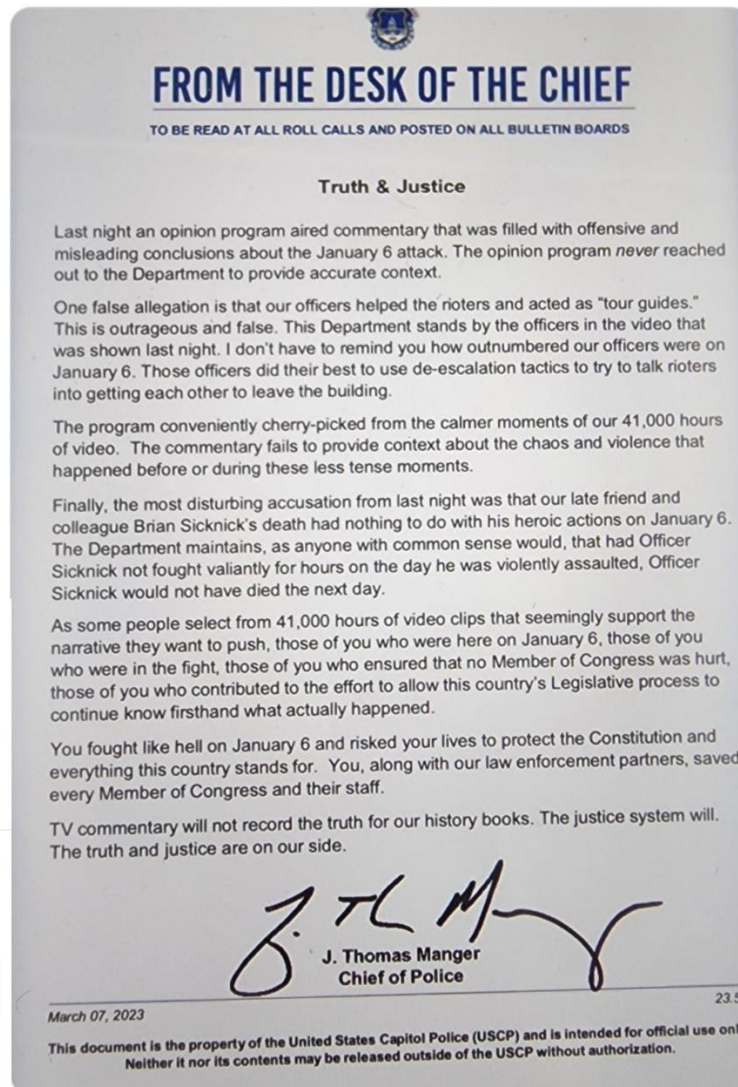 FROM THE DESK OF THE CHIEF
TO BE READ AT ALL ROLL CALLS AND POSTED ON ALL BULLETIN BOARDS
Truth & Justice
Last night an opinion program aired commentary that was filled with offensive and
misleading conclusions about the January 6 attack. The opinion program never reached
out to the Department to provide accurate context.
One false allegation is that our officers helped the rioters and acted as “tour guides.”
This is outrageous and false. This Department stands by the officers in the video that
was shown last night. I don’t have to remind you how outnumbered our officers were on
January 6. Those officers did their best to use de-escalation tactics to try to talk rioters
into getting each other to leave the building.
The program conveniently cherry-picked from the calmer moments of our 41,000 hours
of video. The commentary fails to provide context about the chaos and violence that
happened before or during these less tense moments.
Finally, the most disturbing accusation from last night was that our late friend and
colleague Brian Sicknick’s death had nothing to do with his heroic actions on January 6.
The Department maintains, as anyone with common sense would, that had Officer
Sicknick not fought valiantly for hours on the day he was violently assaulted, Officer
Sicknick would not have died the next day.
As some people select from 41,000 hours of video clips that seemingly support the
narrative they want to push, those of you who were here on January 6, those of you
who were in the fight, those of you who ensured that no Member of Congress was hurt,
those of you who contributed to the effort to allow this country’s Legislative process to
continue know firsthand what actually happened.
You fought like hell on January 6 and risked your lives to protect the Constitution and
everything this country stands for. You, along with our law enforcement partners, saved
every Member of Congress and their staff.
TV commentary will not record the truth for our history books. The justice system will.
The truth and justice are on our side.
J. Thomas Manger
Chief of Police
March 07, 2023
23.5
This document is the property of the United States Capitol Police (USCP) and is intended for official use onl
Neither it nor its contents may be released outside of the USCP without authorization.